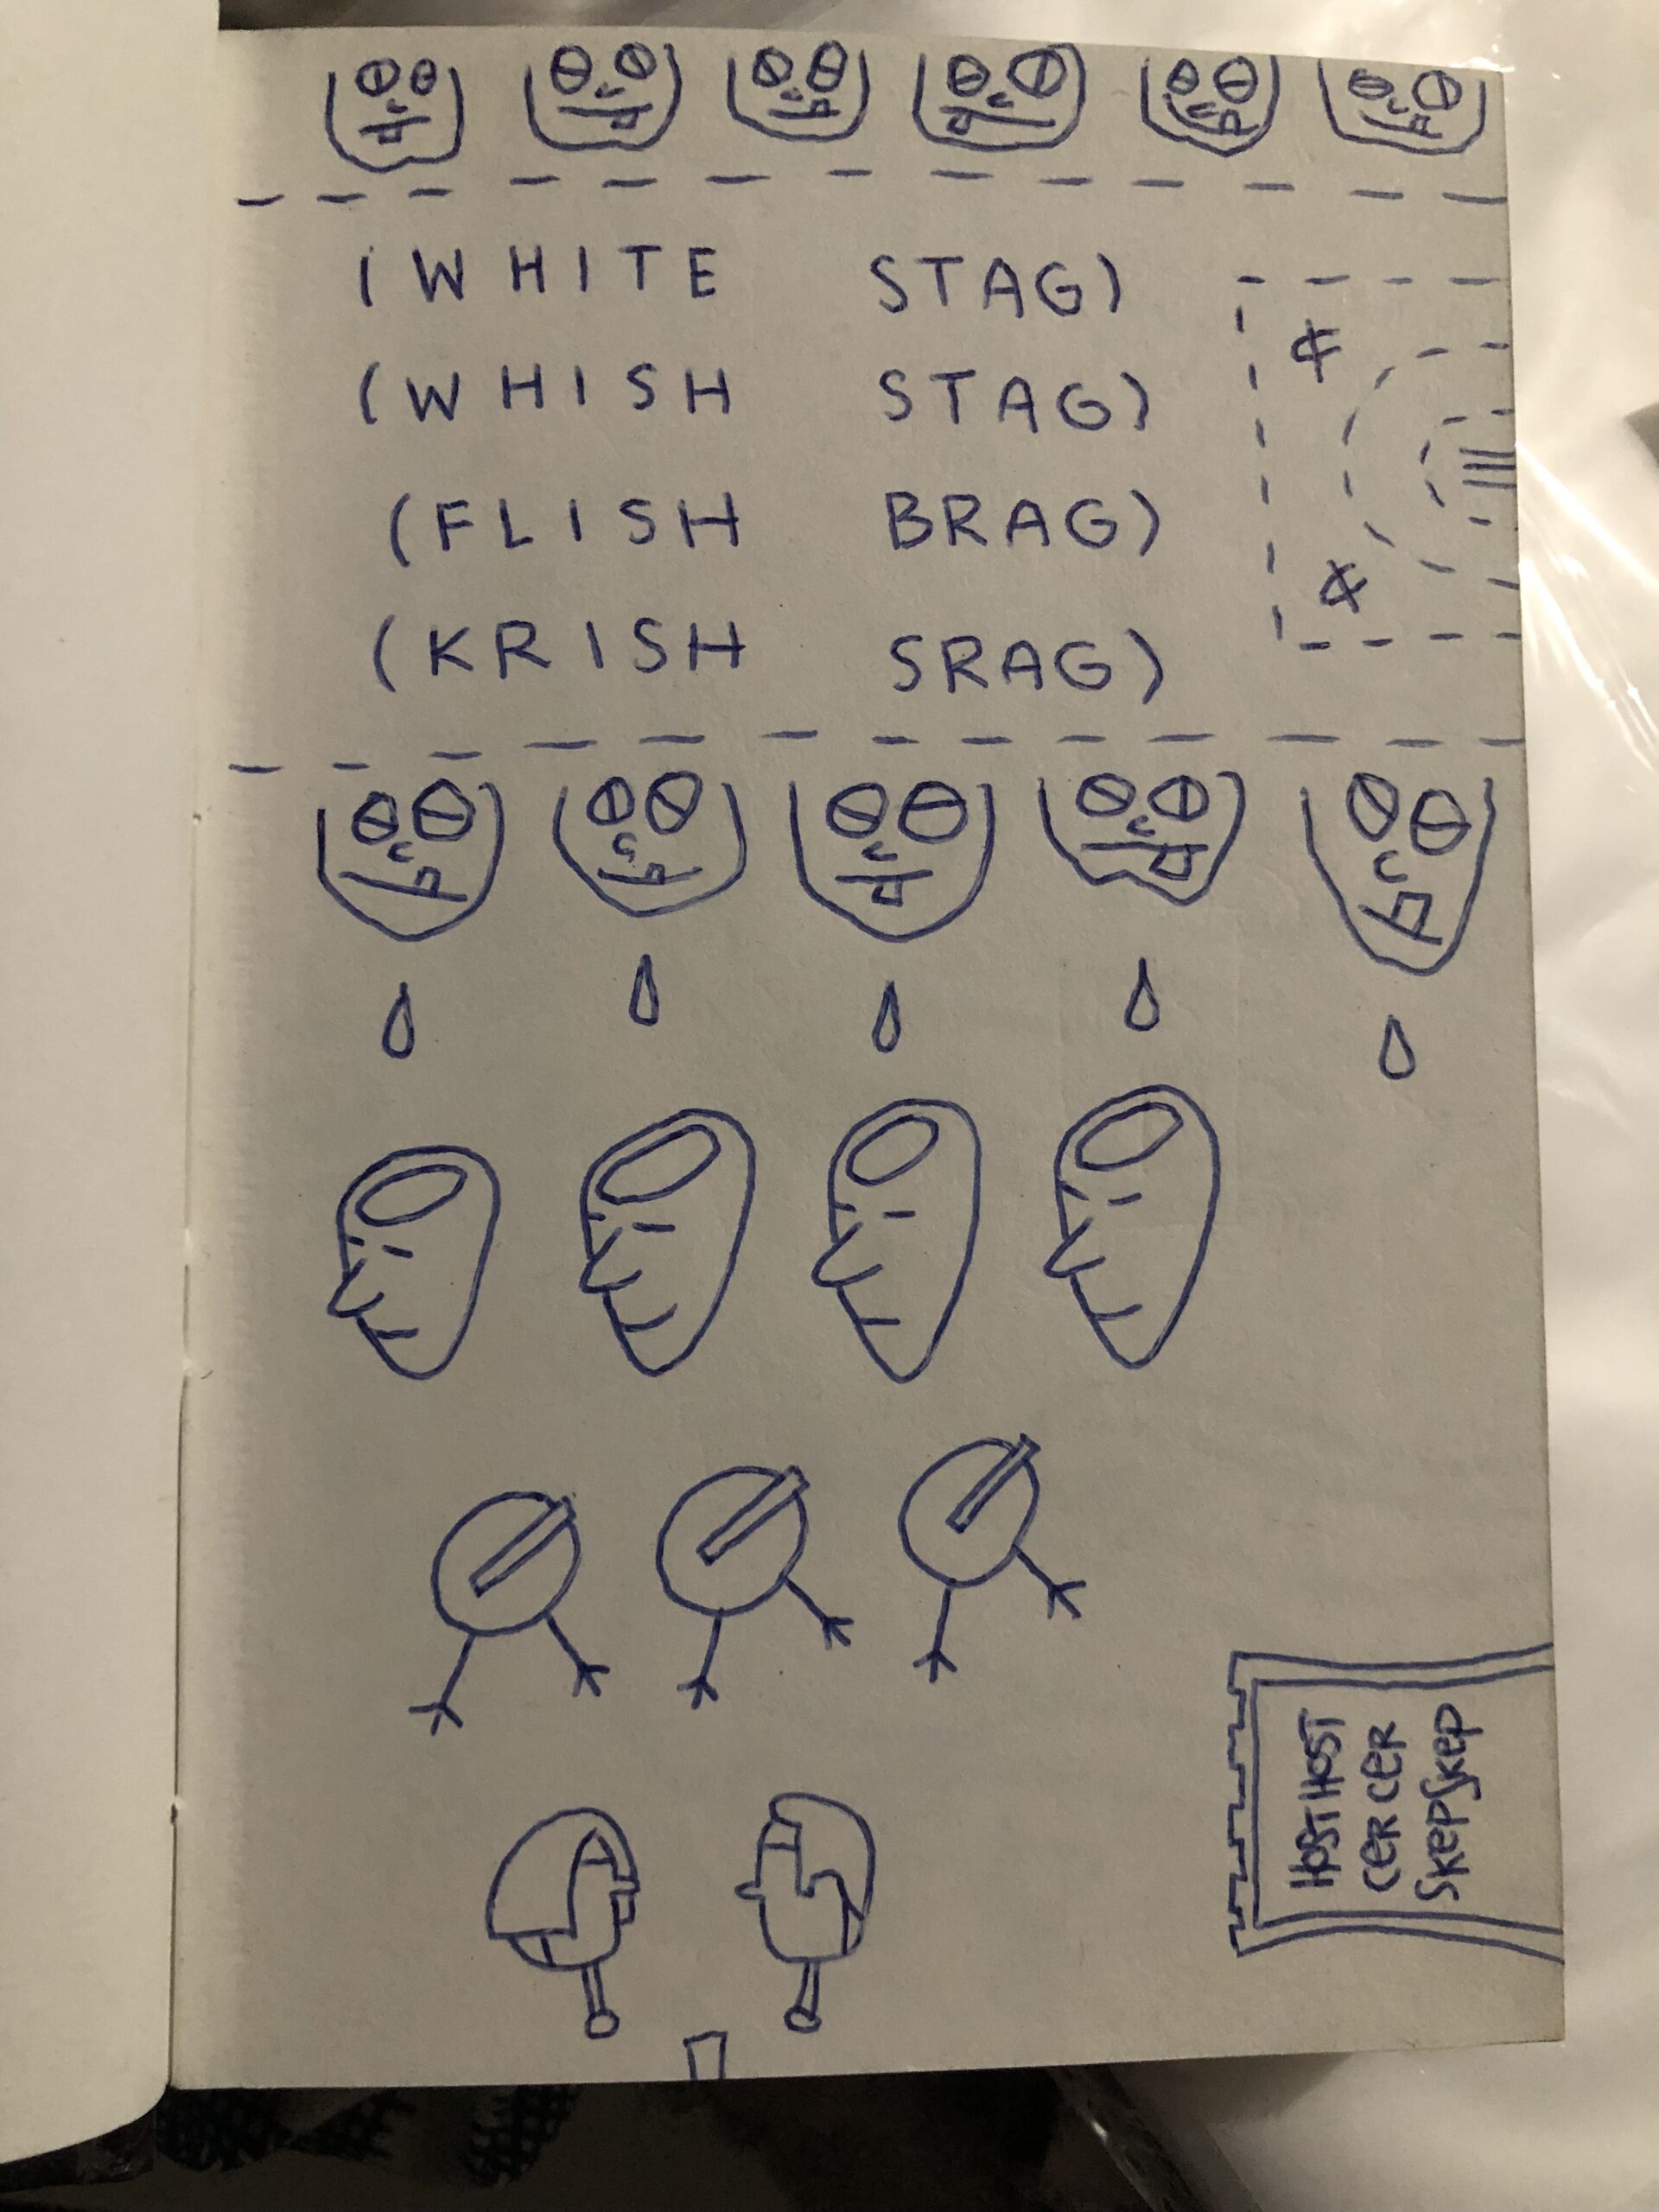 (WHITE STAG)
(WHISH STAG)
(FLISH BRAG)
(KRISH SRAG)
HOST HOST
CER CER
SKEPSKEP